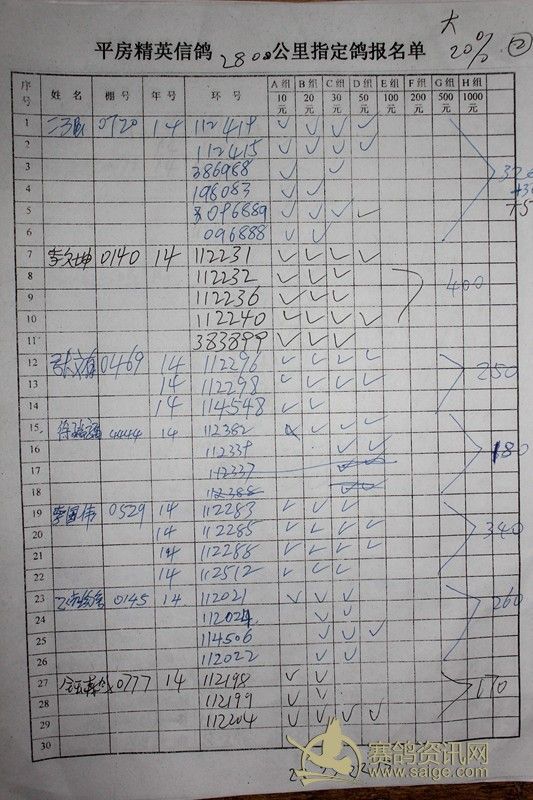 大
平房精英信鸽 2800 公里指定鸽报名单 20% ②
序号 姓名 棚号 年号 环号 A组10元 B组20元 C组30元 D组50元 E组100元 F组200元 G组500元 H组1000元
1 0720 14 112414 ✓ ✓ ✓ ✓
2 112415 ✓ ✓ ✓ ✓
3 386988 ✓ ✓
4 198083 ✓ ✓
5 096889 ✓ ✓ ✓ ✓
6 096888 ✓ ✓
7 李久坤 0140 14 112231 ✓ ✓ ✓ ✓
8 112232 ✓ ✓ ✓
9 112236 ✓ ✓ ✓ 400
10 112240 ✓ ✓ ✓ ✓
11 383899 ✓ ✓ ✓
12 0469 14 112296 ✓ ✓ ✓ ✓
13 14 112298 ✓ ✓ ✓ ✓ 250
14 14 114548 ✓ ✓
15 4444 14 112382 ✓ ✓ ✓
16 112339 ✓ ✓ 180
17 112337 ✓ ✓
18 112388 ✓ ✓
19 李国伟 0529 14 112283 ✓ ✓ ✓
20 14 112285 ✓ ✓ ✓ ✓ 340
21 14 112288 ✓ ✓ ✓ ✓
22 14 112512 ✓ ✓ ✓
23 0145 14 112021 ✓ ✓ ✓ 260
24 112024 ✓ ✓
25 114506 ✓ ✓ ✓
26 112022 ✓ ✓
27 0777 14 112198 ✓ ✓ 170
28 112199 ✓ ✓
29 112204 ✓ ✓ ✓ ✓
30
赛鸽资讯网
www.saige.com